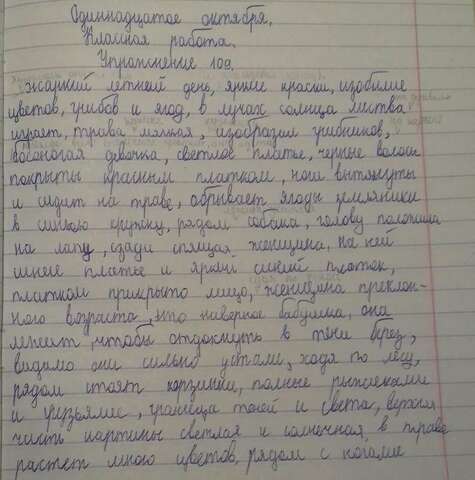 Одиннадцатое октября.
Класная работа.
Упражнение 109.
жаркий летний день, яркие краски, изобилие
цветов, грибов и ягод, в лучах солнца листва
играет, трава мягкая, изобразил грибников,
босоногая девочка, светлое платье, черные волосы
покрыты красным платком, ноги вытянуты
и сидит на траве, обрывает ягоды земляники
в синюю кружку, рядом собака, голову положила
на лапу, сзади спящая женщина, на ней
синее платье и яркий синий платок,
платком прикрыто лицо, женщина преклон-
ного возраста, это наверное бабушка, она
лежит, чтобы отдохнуть в тени берез,
видимо они сильно устали, ходя по лесу,
рядом стоят корзинки, полные рыжиками
и груздями, граница теней и света, верхняя
часть картины светлая и солнечная, в траве
растет много цветов, рядом с ногами